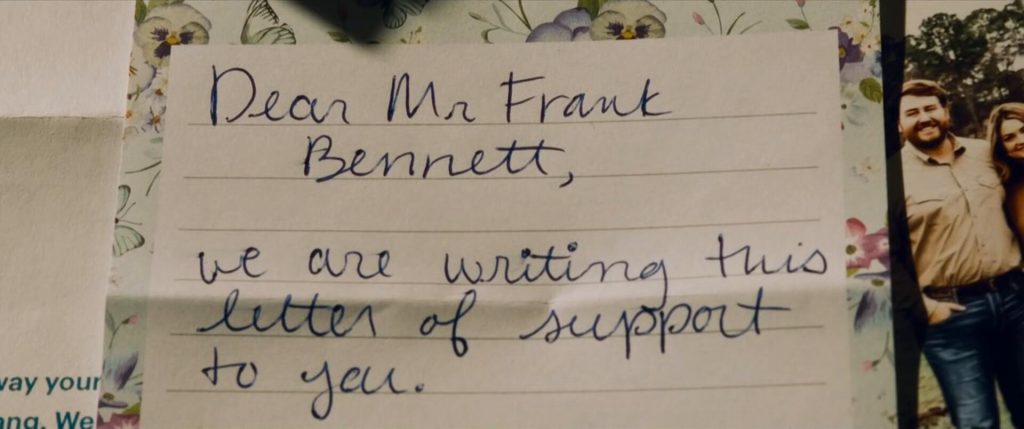 Dear Mr Frank
Bennett,
we are writing this
letter of support
to you.
way your
ang. We